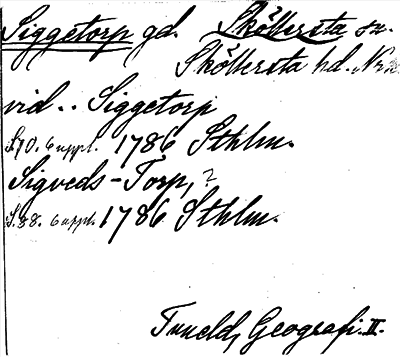 Siggetorp gd. Sköllersta sn.
Sköllersta hd. Nrk
vid .. Siggetorp
S. 70. 6 uppl. 1786 Sthlm.
Sigveds-Torp, ?
S. 58. 6 uppl. 1786 Sthlm.
Tuneld, Geografi. II.